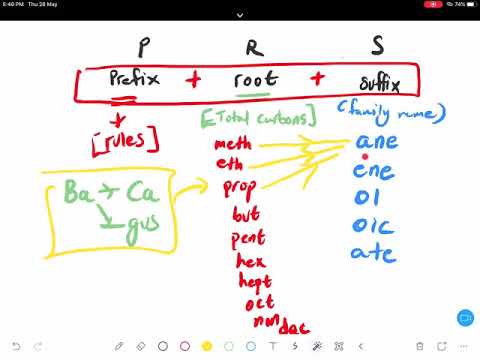 5:46 PM Thu 28 May
74%
P R S
Prefix + root + suffix
[rules]
[Total carbons]
(family name)
meth
eth
prop
but
pent
hex
hept
oct
non dec
ane
ene
ol
oic
ate
Ba Ca
gus
T